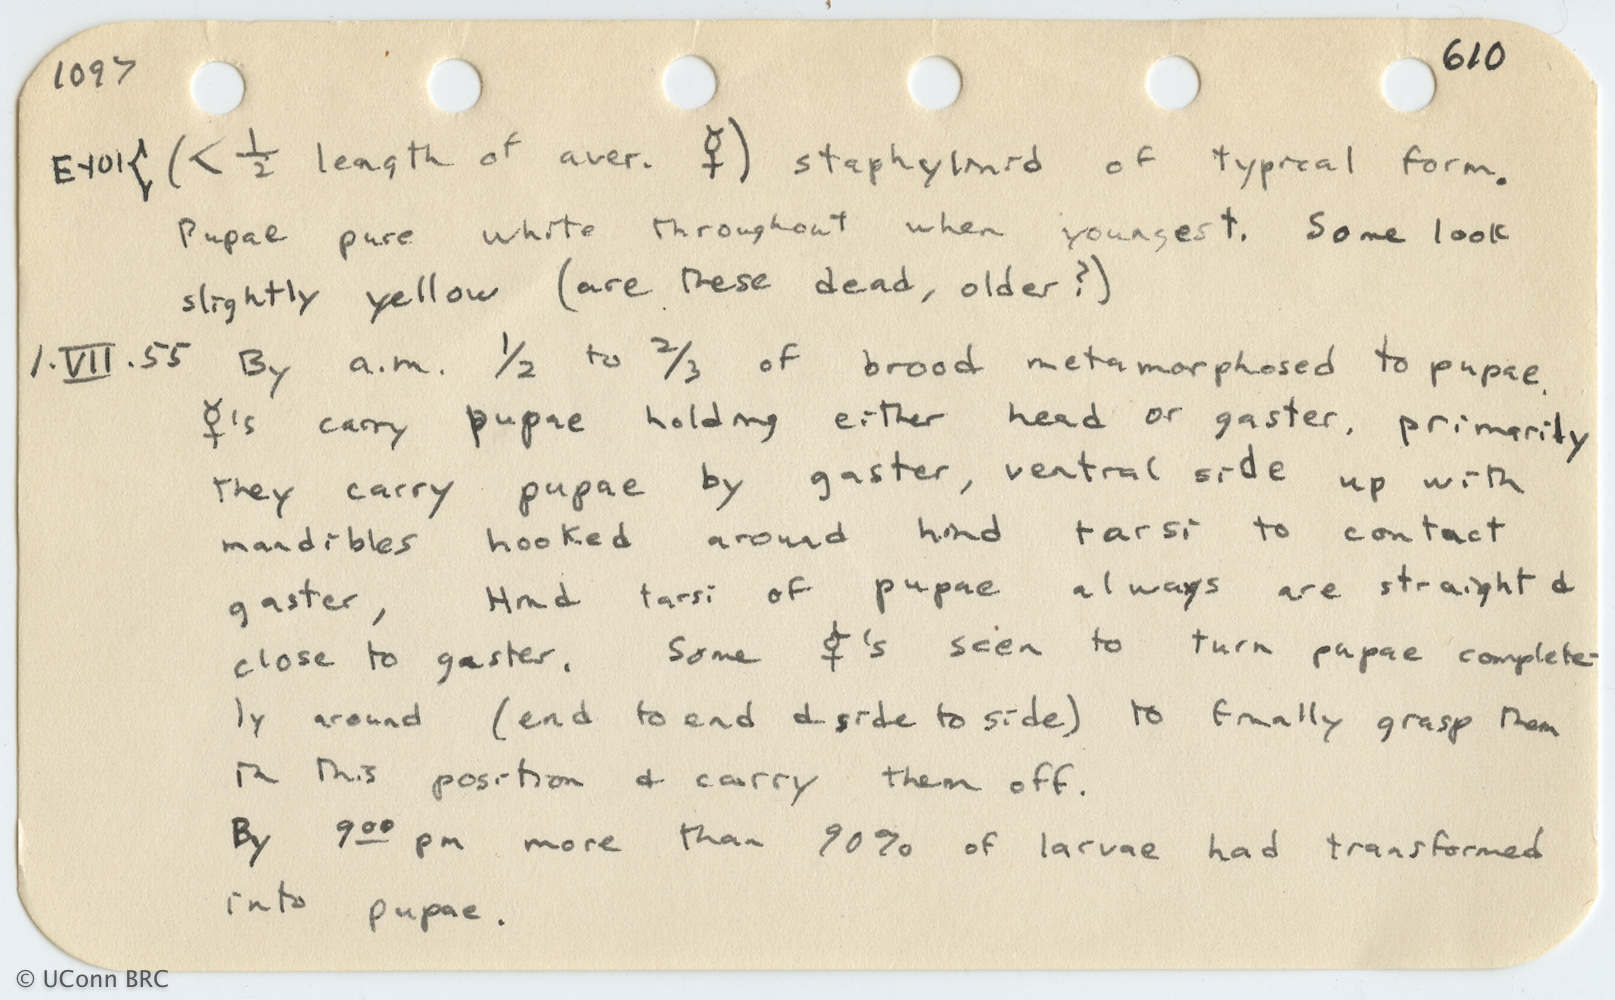 1097 610
E-101{ (< 1/2 length of aver. ☿) staphylinid of typical form.
Pupae pure white throughout when youngest. Some look
slightly yellow (are these dead, older?)
1.VII.55 By a.m. 1/2 to 2/3 of brood metamorphosed to pupae.
☿'s carry pupae holding either head or gaster, primarily
they carry pupae by gaster, ventral side up with
mandibles hooked around hind tarsi to contact
gaster, Hind tarsi of pupae always are straight &
close to gaster. Some ☿'s seen to turn pupae complete-
ly around (end to end & side to side) to finally grasp them
in this position & carry them off.
By 9:00 pm more than 90% of larvae had transformed
into pupae.
© UConn BRC